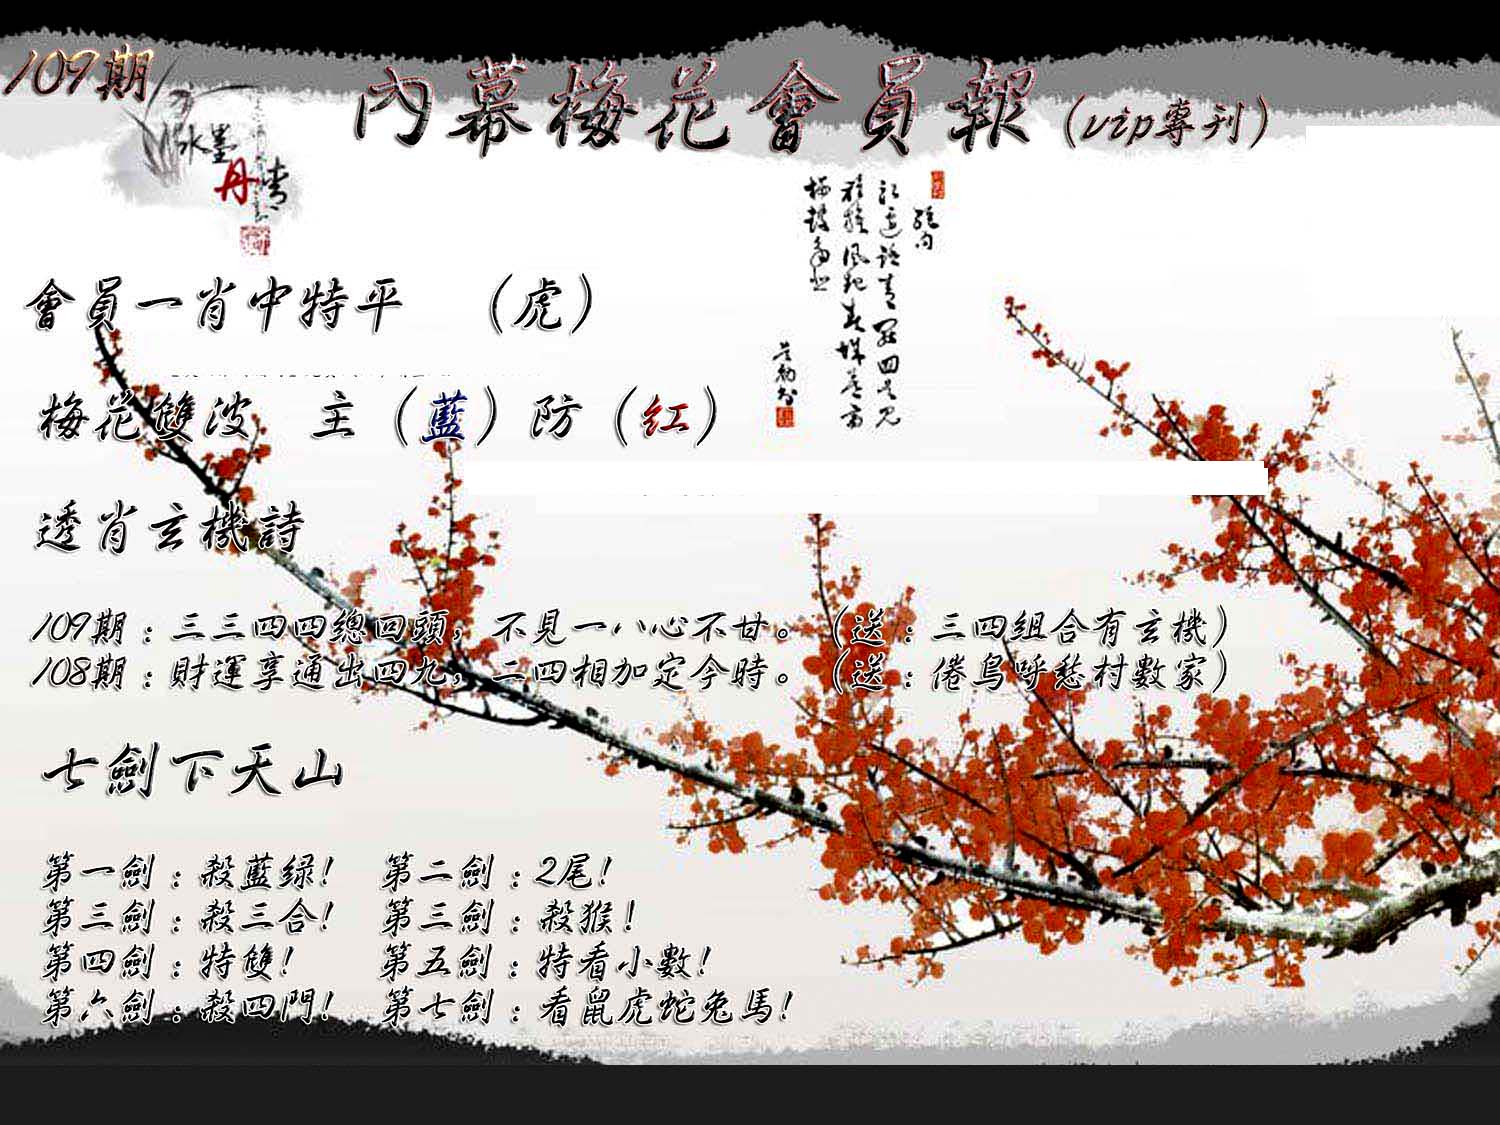 109期
內幕梅花會員報(vip專刊)
水墨
丹青
絕句
會員一肖中特平 (虎)
梅花雙波 主(藍)防(紅)
透肖玄機詩
109期:三三四四總回頭,不見一八心不甘。(送:三四組合有玄機)
108期:財運享通出四九,二四相加定今時。(送:倦鸟呼愁村數家)
七劍下天山
第一劍:殺藍绿! 第二劍:2尾!
第三劍:殺三合! 第三劍:殺猴!
第四劍:特雙! 第五劍:特看小數!
第六劍:殺四門! 第七劍:看鼠虎蛇兔馬!